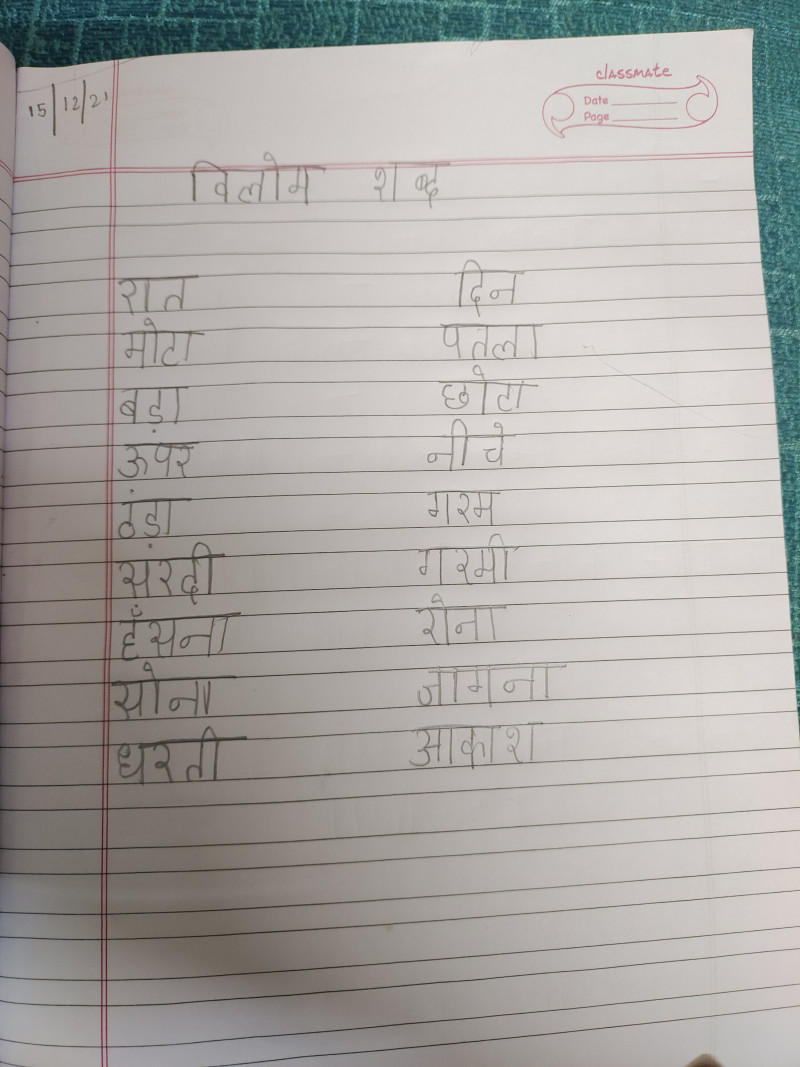 classmate
Date
Page
15/12/21
विलोम शब्द
रात दिन
मोटा पतला
बड़ा छोटा
ऊपर नीचे
ठंड़ा गरम
सरदी गरमी
हँसना रोना
सोना जागना
धरती आकाश